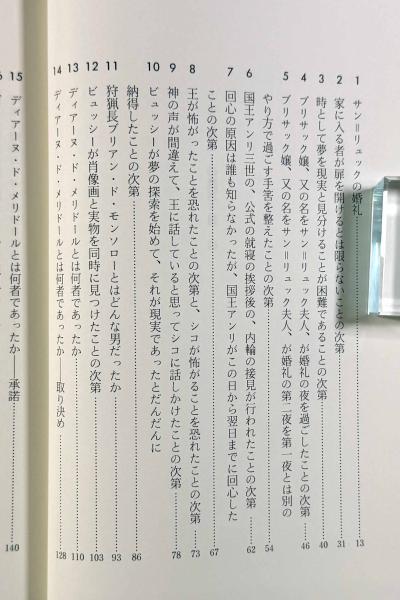 1 サン＝リュックの婚礼……13
2 家に入る者が扉を開けるとは限らないことの次第……31
3 時として夢を現実と見分けることが困難であることの次第……40
4 ブリサック嬢、又の名をサン＝リュック夫人、が婚礼の夜を過ごしたことの次第……46
5 ブリサック嬢、又の名をサン＝リュック夫人、が婚礼の第二夜を第一夜とは別の
やり方で過ごす手筈を整えたことの次第……54
6 国王アンリ三世の、公式の就寝の挨拶後の、内輪の接見が行われたことの次第……62
7 回心の原因は誰も知らなかったが、国王アンリがこの日から翌日までに回心した
ことの次第……67
8 王が怖がったことを恐れたことの次第と、シコが怖がることを恐れたことの次第……73
9 神の声が間違えて、王に話していると思ってシコに話しかけたことの次第……78
10 ビュッシーが夢の探索を始めて、それが現実であったとだんだんに
納得したことの次第……86
11 狩猟長ブリアン・ド・モンソローとはどんな男だったか……93
12 ビュッシーが肖像画と実物を同時に見つけたことの次第……103
13 ディアーヌ・ド・メリドールとは何者であったか……110
14 ディアーヌ・ド・メリドールとは何者であったか 取り決め……128
15 ディアーヌ・ド・メリドールとは何者であったか――承諾……140